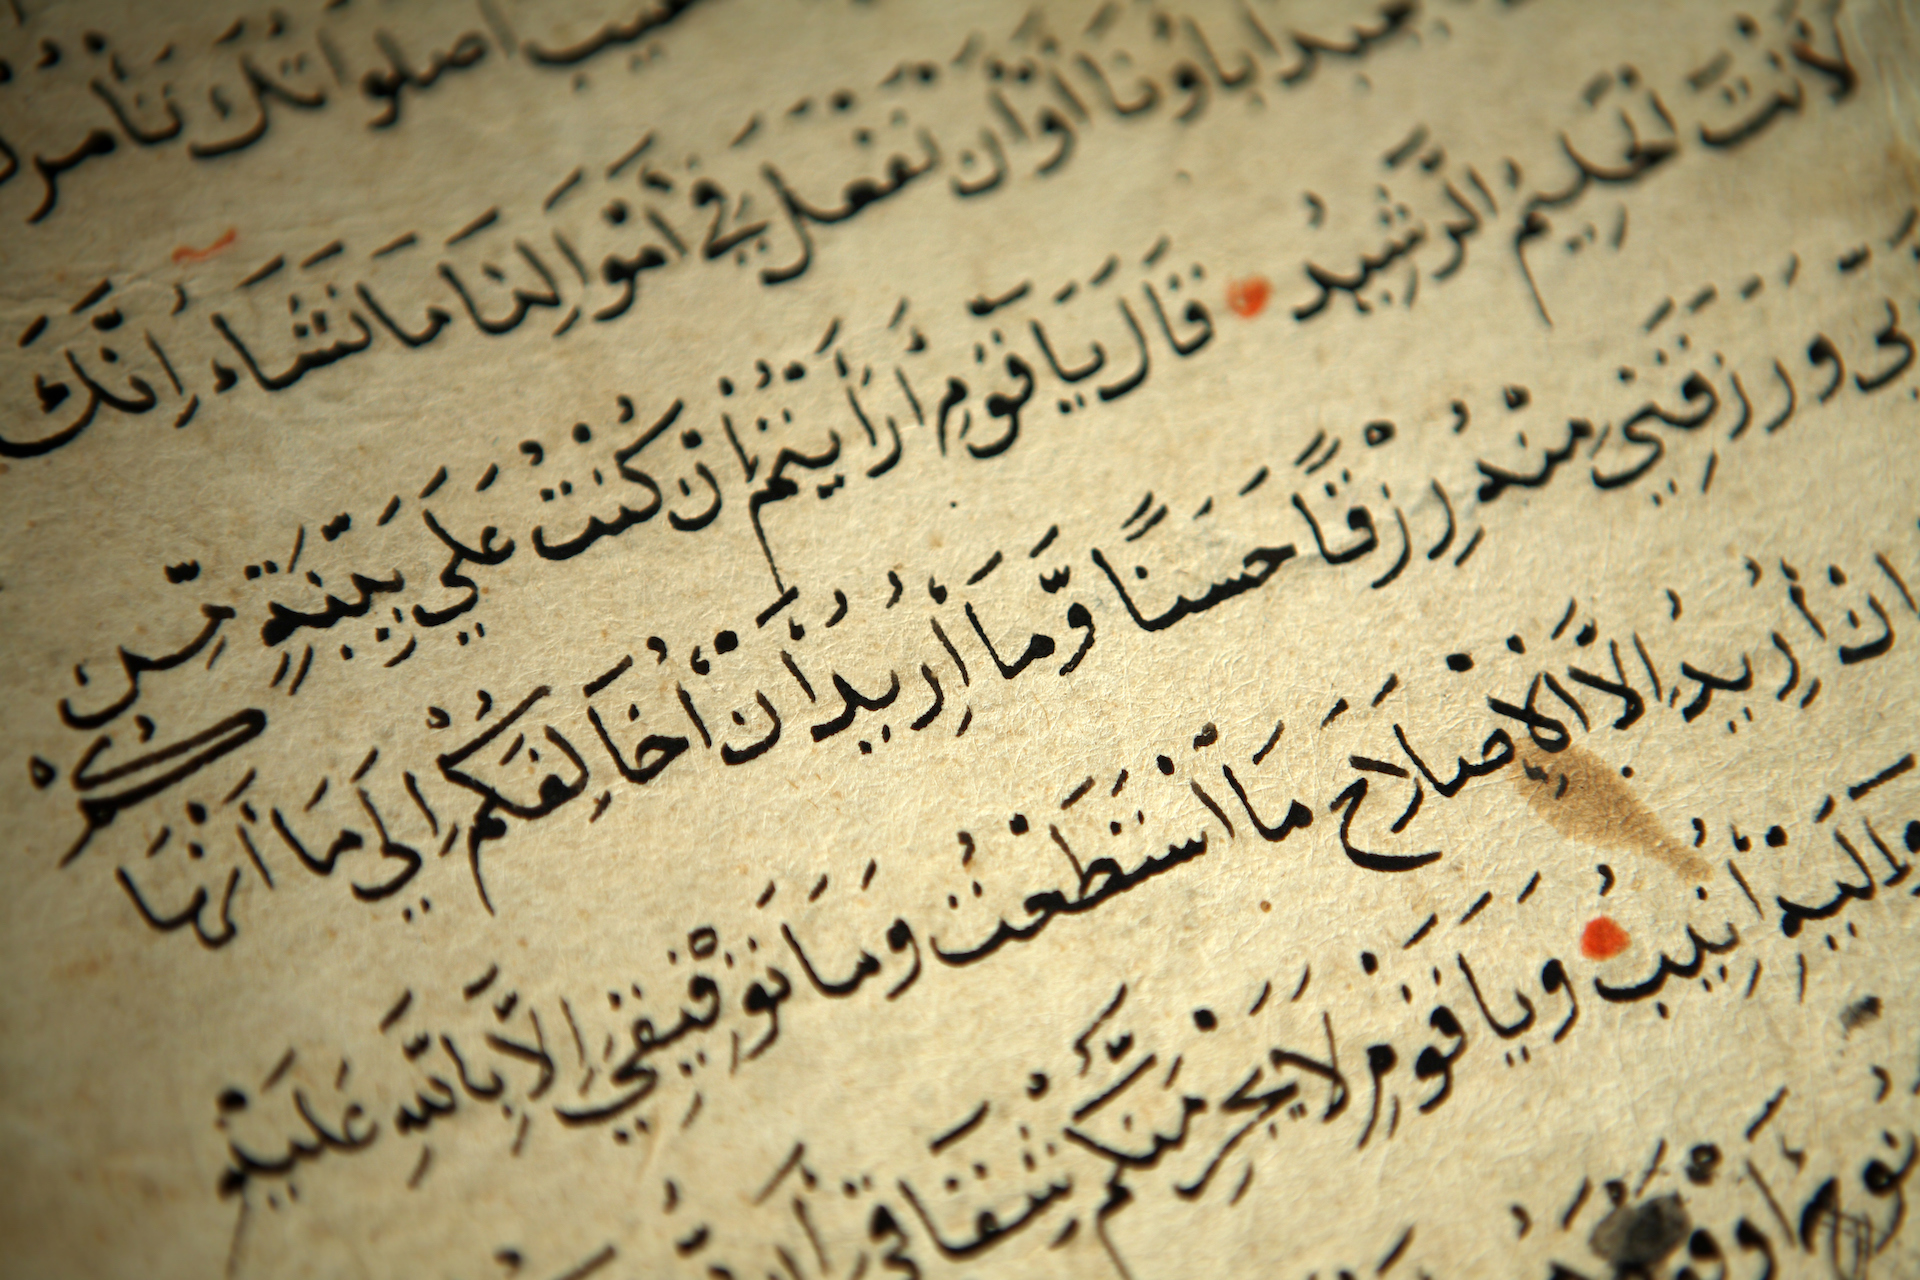 اصلواتك تأمرك
اباؤنا أوأن نفعل في أموالنا ما نشاء إنّك
لأنت الحليم الرّشيد قال يا قوم أرأيتم إن كنت علي بيّنة مّن
ربّي ورزقني منه رزقًا حسنًا وّما أريد أن أخالفكم إلي ما أنهاكم
إن أريد إلاّ الإصلاح ما استطعت وما توفيقي إلاّ بالله عليه
وإليه أنيب ويا قوم لا يجرمنّكم شقاقي أن